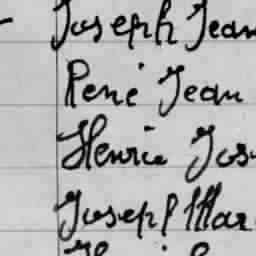 Joseph Jean
René Jean
Henrie Jos
Joseph Mar